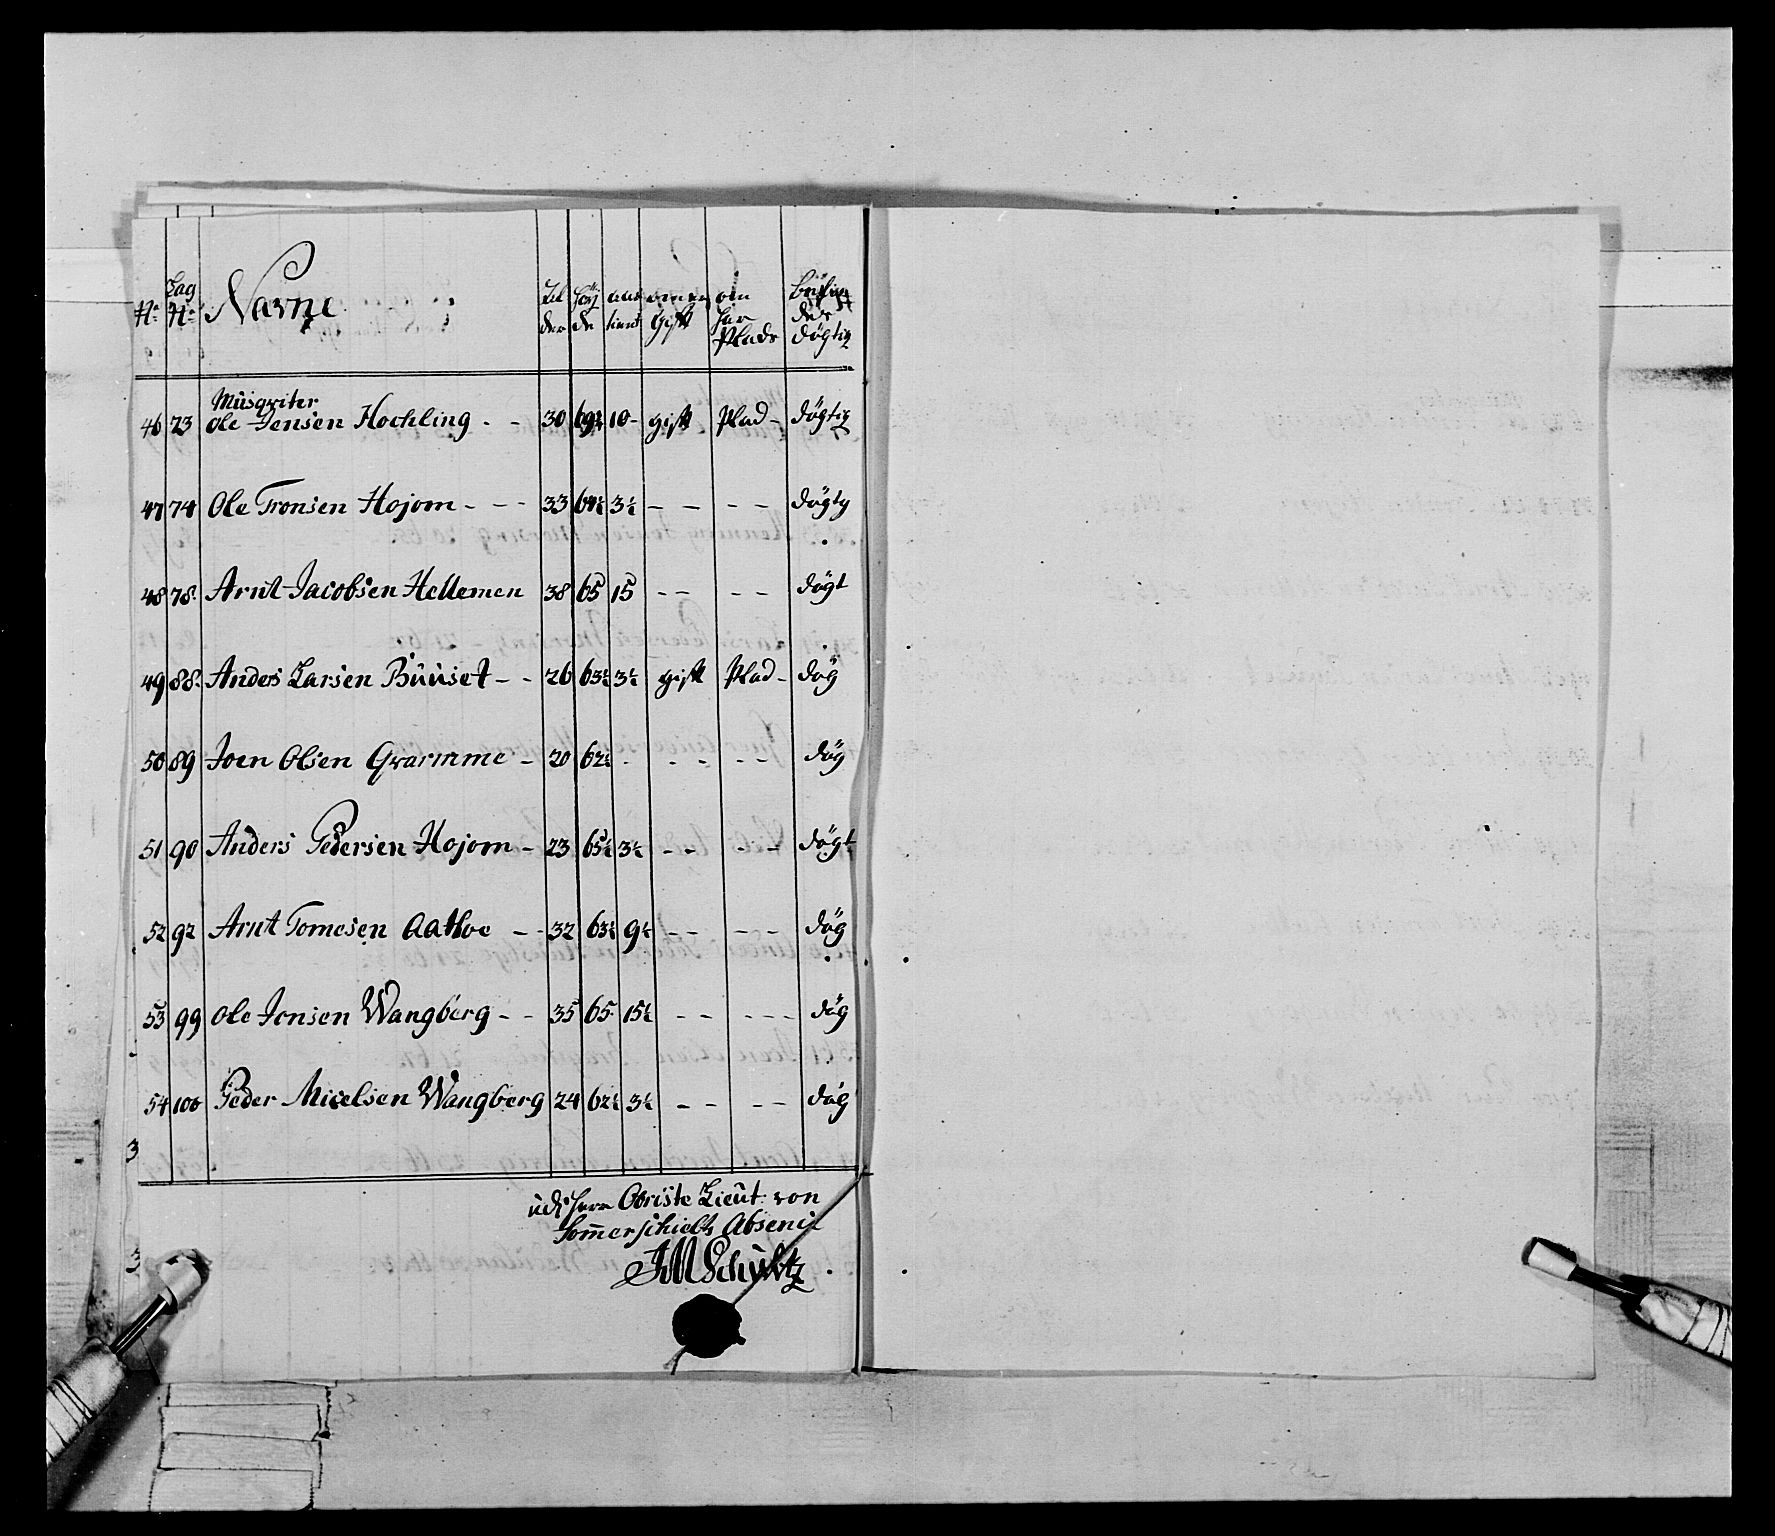 No Lag No Navne Alder Höyde aar tient om en Gift om har Plads Befindes dögtig
Musqviter
46 73 Ole Jensen Hochling - - 30 69½ 10 - gift Plad - dögtig
47 74 Ole Tronsen Hojom - - - 33 64½ 3½ - - - - dögtg
48 78 Arnt Jacobsen Hellemen 38 65 15 - - - - dögt
49 88 Anders Larsen Büüset - - 26 63½ 3½ gift Plad - dög
50 89 Joen Olsen Qvamme - 20 62½ - - - - - dög
51 90 Anders Pedersen Hojom - 23 65½ 3½ - - - - dögt
52 92 Arnt Tomesen Aathoe - - 32 63½ 9½ - - - - - dög
53 99 Ole Jonsen Wangberg - - 35 65 15½ - - - - - dög
54 100 Peder Micelsen Wangberg 24 62½ 3½ - - - - dög
3
udi Herr Obriste Lieut. von
Somerschielts Absenci
JM Schultz
3